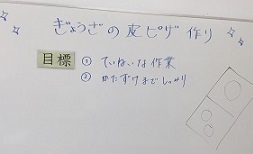 ぎょうざの皮ピザ作り
目標 ① ていねいな作業
② かたずけまでしっかり